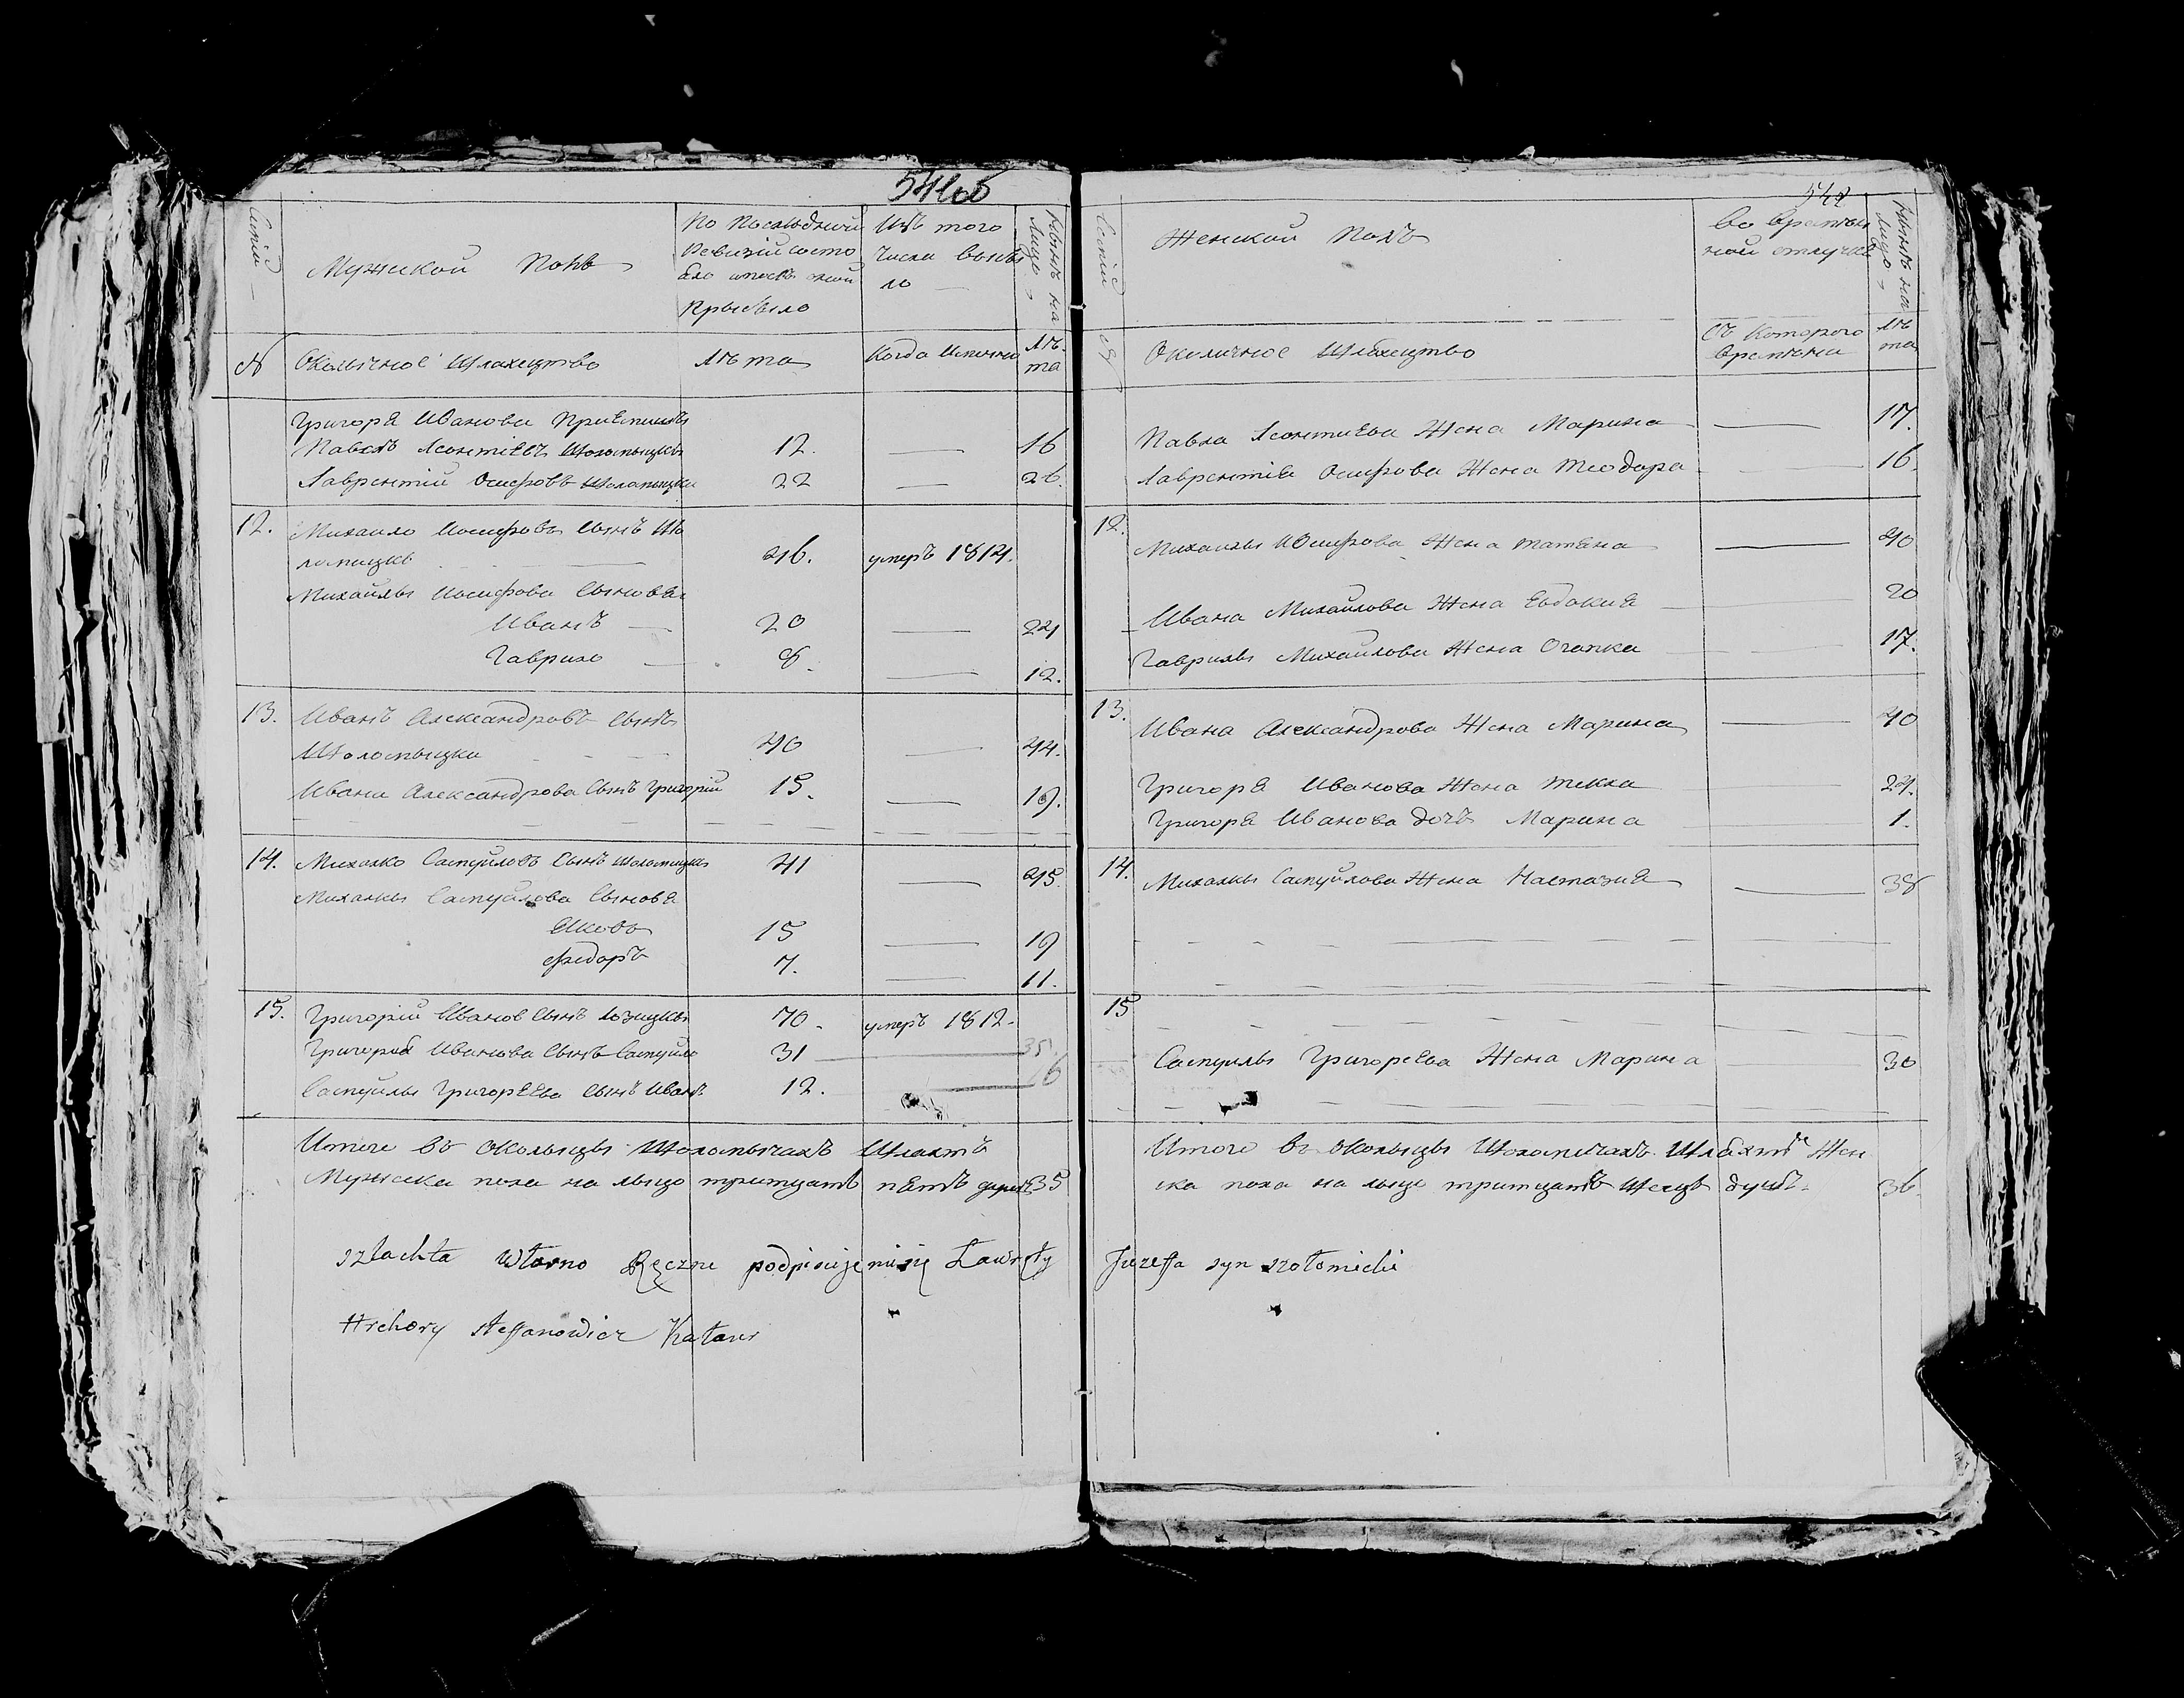 541об
Семіи
Мужской Полъ
По Последней
Ревизіи состо
яло и после оной
Прыбыло
Изъ того
Числа выбы
ло
Нынѣ на
Лицо
№
Околычное Шляхецтво
Лѣта
Когда Именно
Лѣ-
та
Григоря Иванова Приемышъ
Павелъ Леонтіевъ 12. 16
Лаврентій Осифовъ 22 26.
12. Михаило Иосифовъ Сынъ Шо
ломицки 46. умеръ 1814.
Михайлы Иосифова Сыновья
Иванъ 20 24
Гаврило 8. 12.
13. Иванъ Александровъ Сынъ
Шоломыцки 40 44.
Ивана Александрова Сынъ Григорій 15. 19.
14. Михалко Самуйловъ Сынъ Шоломицки 41 45.
Михалки Самуйлова Сыновя
Яковъ 15 19
Федоръ 7. 11.
15. Григорій Иванов Сынъ Лозицки 70. умеръ 1812.
Григоря Иванова Сынъ Самуйло 31 35
Самуйлы Григорьева Сынъ Иванъ 12. 16
Итого въ Околыцы Шоломычахъ Шляхтѣ
Мужска пола на лыцо тритцать пять душъ 35
szlachta Własno Ręczne podpisujemisię Ławryty
Hrehory Steffanowicz Kataur
542
Семіи
Женской Полъ
Во Времен
ной отлучке
Нынѣ на
Лицо
№
Околичное Шляхецтво
Съ Которого
времени
Лѣ
та
Павла Леонтиева Жена Марина 17.
Лаврентія Осифова Жена Теодора 16.
12. Михайлы Иосифова Жена Татяна 40
Ивана Михайлова Жена Евдокия 20
Гаврилы Михайлова Жена Огапка 17.
13. Ивана Александрова Жена Марина 40
Григоря Иванова Жена Текла 24.
Григоря Иванова дочь Марина 1.
14. Михалки Самуйлова Жена Настазия 38
15
Самуилы Григорьева Жена Марина 30
Итого въ Околыцы Шоломичахъ Шляхтѣ Жен
ска пола на лыцо тритцать Шесць душъ. 36.
Juzeffa syn szołomicki